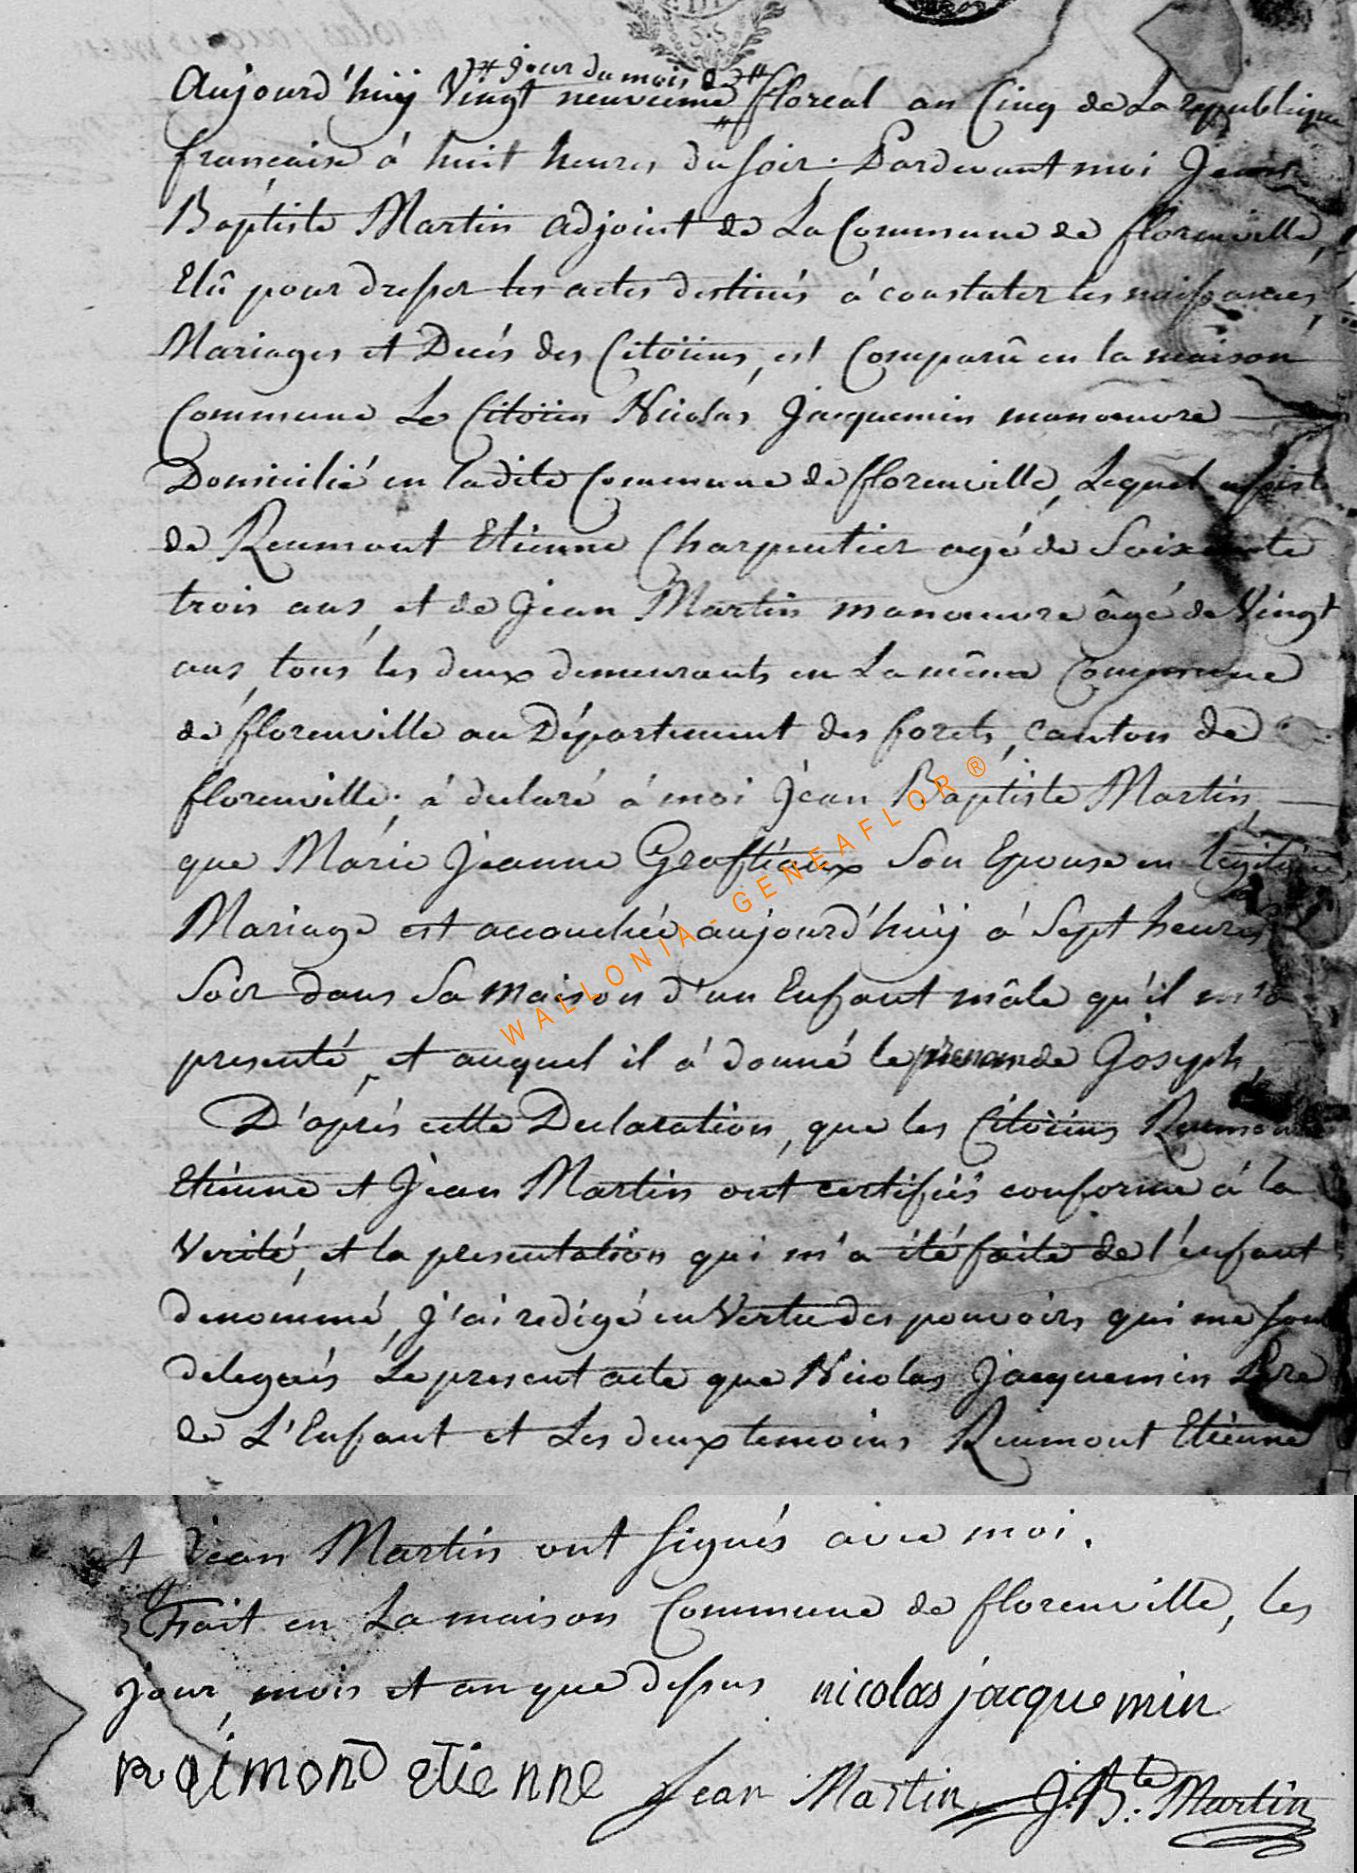 jour du mois de
Aujourd'huÿ Vingt neuvieme floreal an Cinq de La republique
française à huit heures du soir, Pardevant moi Jean
Baptiste Martin adjoint de La Commune de florenville,
Elû pour dresser les actes destinés à constater les naissances,
Mariages et Decés des Citoïens, est Comparû en la maison
Commune Le Citoïen Nicolas Jacquemin manoeuvre
Domicilié en ladite Commune de florenville, Lequel assisté
de Reumont Etienne Charpentier agé de Soixante
trois ans, et de Jean Martin manoeuvre âgé de Vingt
ans, tous les deux demeurants en La même Commune
de florenville au Département des forets, canton de
florenville; à declaré à moi Jean Baptiste Martin,
que Marie Jeanne Grafteaux Son Epouse en legitime
Mariage est accouchée aujourd'huÿ à Sept heures
Soir dans Sa Maison d'un Enfant mâle qu'il m'a
presenté, et auquel il à donné le prenom de Joseph,
D'aprés cette Declaration, que les Citoïens Reumont
Etienne et Jean Martin ont certifiés conforme à la
Verité, et la presentation qui m'a été faite de l'enfant
denommé, j'ai redigé en Vertu des pouvoirs qui me sont
delegués Le present acte que Nicolas Jacquemin Pere
de L'Enfant et Les deux temoins Reumont Etienne
et Jean Martin ont signés avec moi.
Fait en La maison Commune de florenville, les
jour, mois et an que dessus nicolas jacquemin
raimond etienne Jean Martin J. Bte. Martin
WALLONIA-GENEAFLOR ®